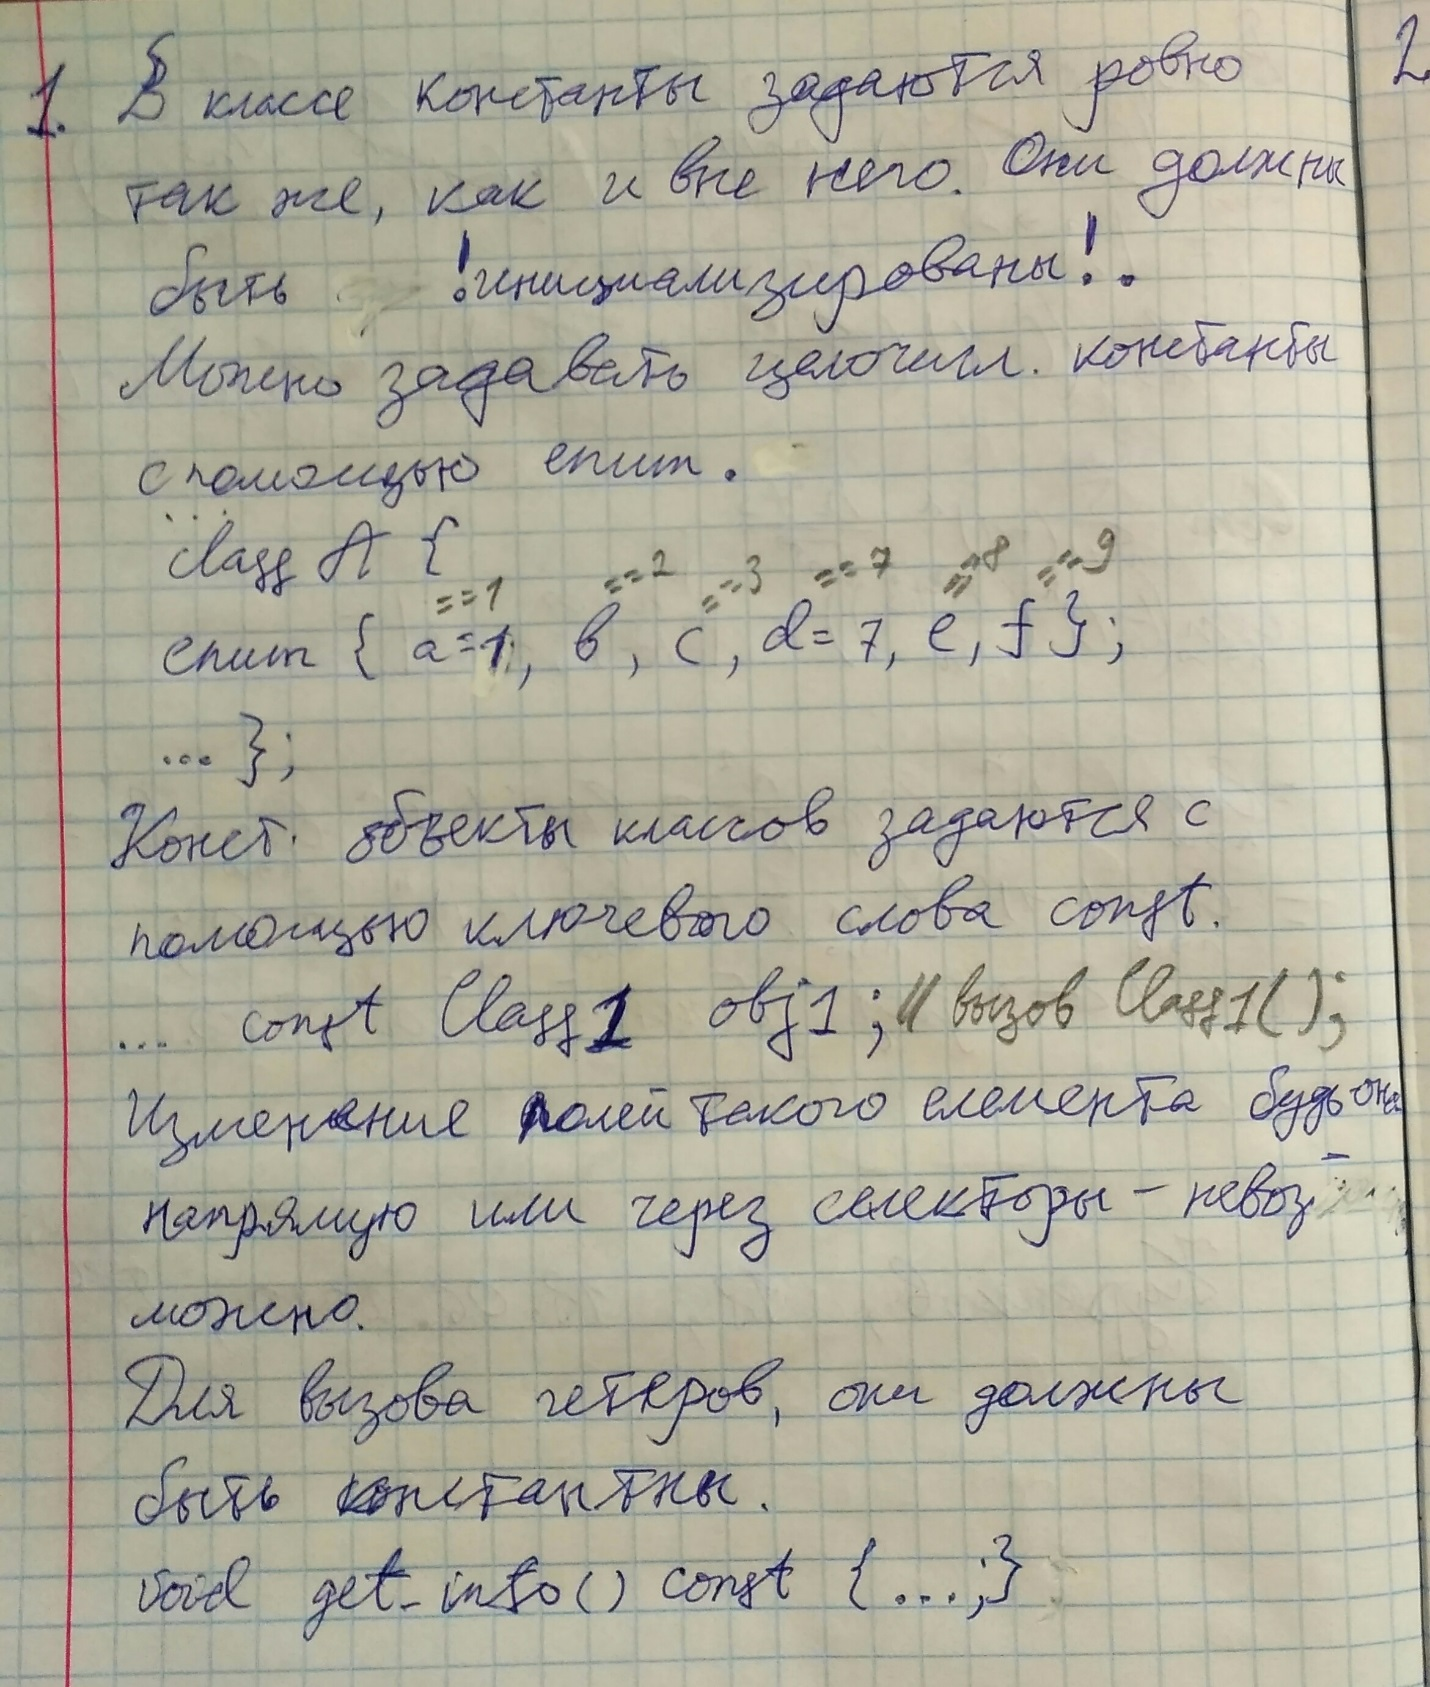 1. В классе константы задаются ровно
так же, как и вне него. Они должны
быть !инициализированы!.
Можно задавать целочисл. константы
с помощью enum.
class A {
==1 ==2 ==3 ==7 ==8 ==9
enum { a=1, b, c, d=7, e, f };
... };
Конст. объекты классов задаются с
помощью ключевого слова const.
... const Class1 obj1; // вызов Class1();
Изменение полей такого елемента будь она
напрямую или через селекторы - невоз-
можно.
Для вызова геттеров, они должны
быть константны.
void get_info() const {...;}
2